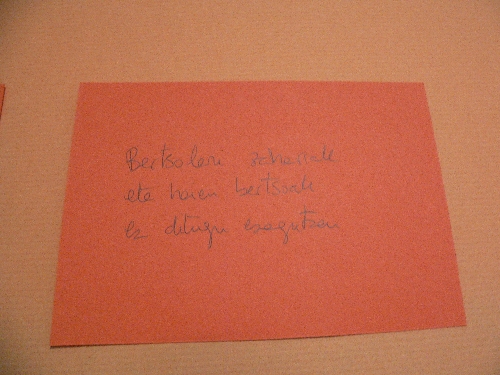 Bertsolari zaharrak
eta haien bertsoak
ez ditugu ezagutzen